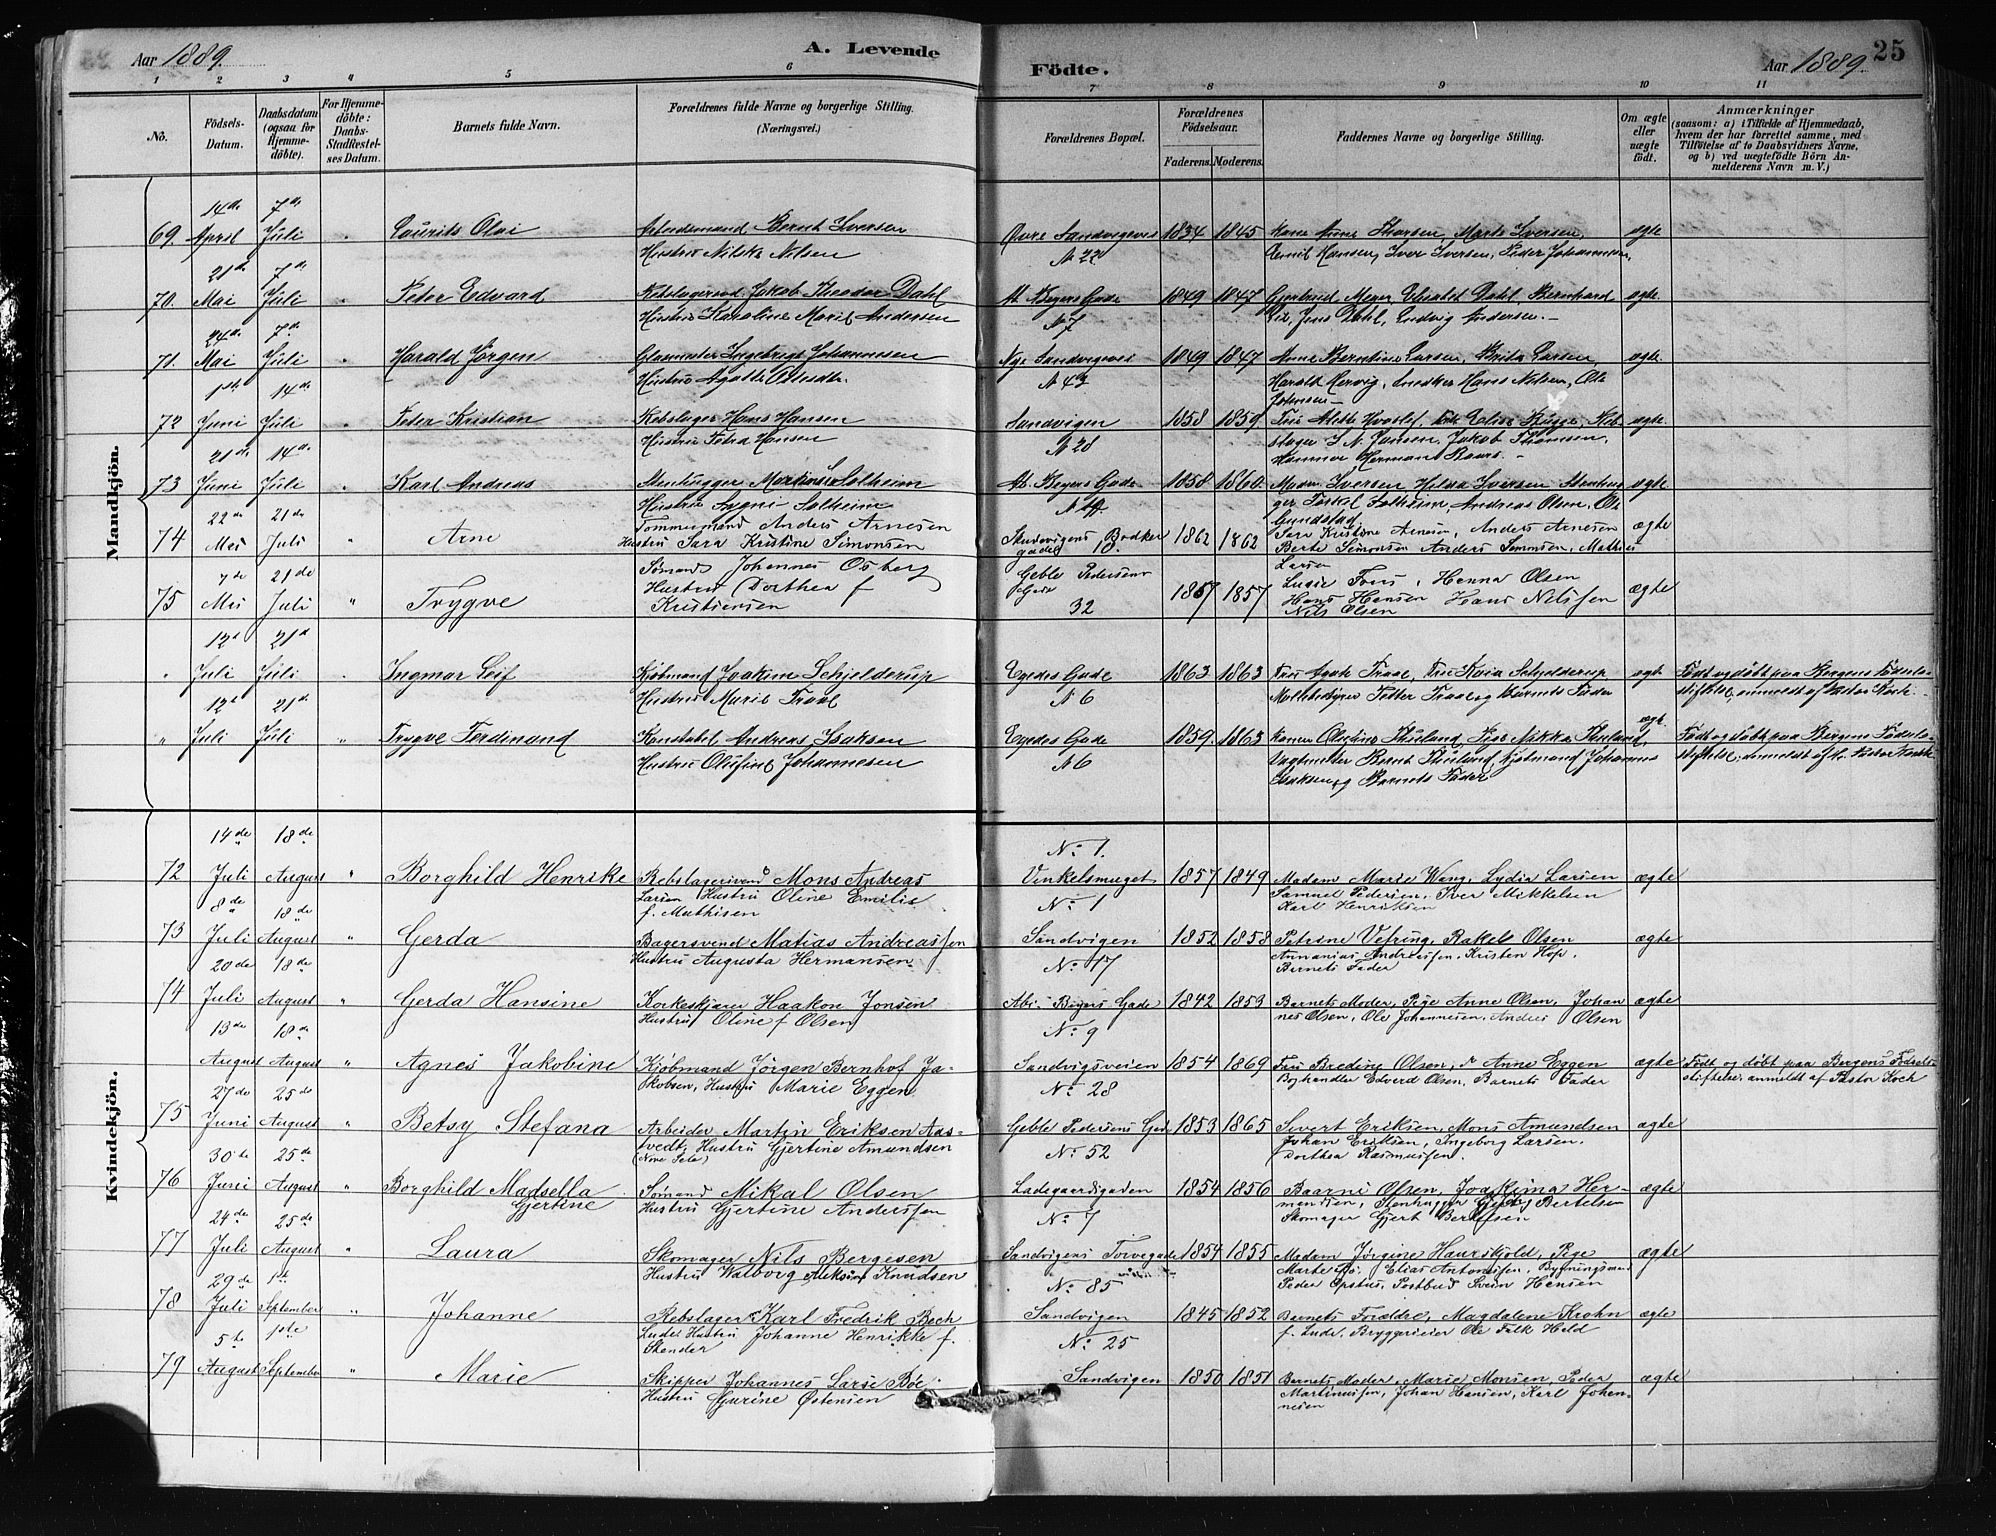 Aar 1889. A. Levende Födte. Aar 1889. 25
1 2 3 4 5 6 7 8 9 10 11
Nô. Födsels-Datum. Daabsdatum (ogsaa för Hjemmedöbte). For Hjemmedöbte: Daabs-Stadfæstelses Datum. Barnets fulde Navn. Forældrenes fulde Navne og borgerlige Stilling. (Næringsvei.) Forældrenes Bopæl. Forældrenes Födselsaar. Faderens. Moderens. Faddernes Navne og borgerlige Stilling. Om ægte eller uægte födt. Anmærkninger (saasom: a) i Tilfælde af Hjemmedaab, hvem der har forrettet samme, med Tilföielse af to Daabsvidners Navne, og b) ved uægtefödte Börn Anmelderens Navn m. V.)
Mandkjön.
14de 7de
69. April Juli " Laurits Olai Arbeidsmand Bernt Iversen Øvre Sandvigsvei 1834 1845 Kone Anne Iversen, Iversen, ægte
Hustru Nilska Nilsen N 22 Hansen, Iver Iversen, Peder Johannesen,
21de 7de
70. Mai Juli " Peter Edvard Rebslagersvd. Jakob Theodor Dahl Ab. Beyers Gade 1849 1847 Gjertrud Meyer, Elisabet Dahl, Bernhard ægte
Hustru Karoline Marie Andersen N 7 Jens Dahl, Ludvig Andersen. –
24de 7de
71. Mai Juli " Harald Jørgen Glasmester Ingebrigt Johannesen Nye Sandvigsvei 1849 1847 Anne Berntine Larsen, Brita Larsen ægte
Hustru Agathe N 43 Harald Snedker Hans Nilsen, Ole
1ste 14de
72 Juni Juli " Peter Kristian Rebslager Hans Hansen Sandvigen 1858 1859 Fru Elise Bugge, Reb- ægte
Hustru Petra Hansen N 28 slager S. N. Jansen, Jakob Thomsen,
Herman
21de 14de
73 Juni Juli " Karl Andreas Stenhugger Solheim Ab. Beyers Gade 1858 1860. Iversen, Hilda Iversen ægte
Hustru Sygni Solheim Solheim, Andreas Olsen, Ole
22de 21de
74 Mai Juli " Arne Tømmermand Anders Arnesen Sandvigens Bødker 1862 1862 Sara Kristine Arnesen, Anders Arnesen ægte
Hustru Sara Kristine Simonsen gade 18. Berte Simonsen Anders Simonsen, Mathias
Larsen
7de 21de Sømand Johannes Osberg Geble Pedersens
75 Mai Juli " Trygve Hustru Dorthea f Gade 1857 1857 Henna Olsen ægte
Kristiensen 32 Hans Hansen Hans Nilssen
Nils Olsen
12te 21de
" Juli Juli " Ingmar Leif Kjøbmand Joakim Schjelderup Egedes Gade 1863 1863 Fru Fru Schjelderup ægte Født og døbt paa Bergens Fødsels-
Hustru Marie N 6 Petter og Barnets Fader stiftelse; anmeldt af Pastor Koch. –
12te 21de
" Juli Juli " Trygve Ferdinand Konstabel Andreas Isaksen Egedes Gade 1859. 1863 Konen Pige ægte Født og døbt paa Bergens Fødsels-
Hustru Johannesen N 6 Bernt Kjøbmand Johannes stiftelse; anmeldt af Pastor Koch
Isaksen og Barnets Fader
Kvindekjön.
14de 18de No 1.
72 Juli August " Borghild Henrike Rebslagersvend Mons Andreas Vinkelsmuget 1857 1849 Madam Marie Wang, Lydia Larsen ægte
Larsen Hustru Oline Emilie No 1 Samuel Pedersen, Iver Mikkelsen
f. Mathisen Karl Henriksen
8de 18de
73 Juli August " Gerda Bagersvend Matias Andreassen Sandvigen 1852 1858 Petrine Vefring, Rakel Olsen ægte
Hustru Augusta Hermansen No 17 Annanias Andreassen, Kristen Hop,
Barnets Fader
20de 18de
74 Juli August " Gerda Hansine Korkeskjærer Haakon Jonsen Abr. Beyers Gade 1842 1853 Barnets Moder, Pige Anne Olsen, Johan ægte
Hustru Oline f Olsen No 9 nes Olsen, Ole Johannesen, Anders Olsen
13de 18de
August August " Agnes Jakobine Kjøbmand Jørgen Bernhof Ja- Sandvigsveien 1854 1869 Fru Bredine Olsen, Fr Anne Eggen ægte Født og døbt paa Bergens Fødsels-
kobsen, Hustru Marie Eggen No 28 Boghandler Edvard Olsen, Barnets Fader stiftelse, anmeldt af Pastor Koch
27de 25de
75 Juni August " Betsy Stefana Arbeider Martin Eriksen Aas- Geble Pedersens Gade 1853 1865 Sivert Eriksen, Mons Amundsen ægte
tvedt, Hustru Gjertine Amundsen No 52 Johan Eriksen, Ingeborg Larsen,
Dorthea Rasmussen.
30te 25de
76 Juni August " Borghild Madsella Sømand Mikal Olsen Ladegaardsgaden 1854 1856 Baarni Olsen, Joakima Her- ægte
Gjertine Hustru Gjertine Anderssen No 7 mandsen, Stenhugger Bertelsen
Skomager Gjert Bertelsen
24de 25de
77 Juli August " Laura Skomager Nils Bergesen Sandvigens Torvegade 1854 1855 Madam Jørgine Haurskjold, Pige ægte
Hustru Walborg Knudsen No 85 Marte Bø, Elias Antonissen, Bygningsmand
Peder Postbud Svein Hansen
29de 1ste
78 Juli September " Johanne Rebslager Karl Fredrik Bech Sandvigen 1845 1852 Barnets Forældre, Magdalene Krohn ægte
Lude Hustru Johanne Henrikke f. No 25 f. Lude, Bryggerieier Ole Falk Held
Stender
5te 1ste
79 August September " Marie Skipper Johannes Larse Bøe Sandvigen 1850 1851 Barnets Moder, Marie Monsen, Peder ægte
Hustru Gurine Østensen Martinussen, Johan Hansen, Karl Johan-
nesen